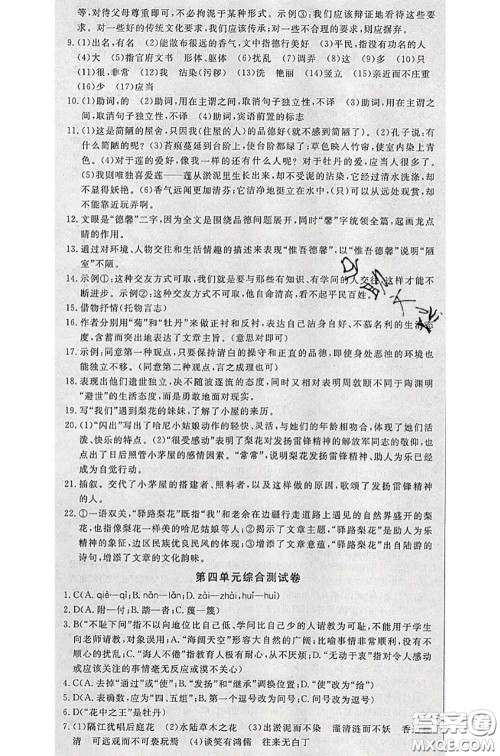 等,对待父母尊重即可,不必拘泥于某种形式。示例③:我们应该辩证地看待这些要
求。对一些好的传统文化要求,我们应该遵从;对一些不合理的要求,则应屏弃。
9.(1)出名,有名 (2)能散布很远的香气,文中指德行美好 (3)平民,指没有功名的人
(4)大 (5)指官府文书 形体、躯体 (6)扰乱 (7)调弄 (8)这 (9)多 (10)只
(11)很,非常 (12)沾染(污秽) (13)洗 艳丽 (14)竖立 (15)亲近而不庄重
(16)少 (17)应当
10.(1)助词,的 (2)助词,用在主谓之间,取消句子独立性,不译 (3)助词,用在主谓之
间,取消句子独立性,不译 (4)助词,宾语前置的标志
11.(1)这是简陋的屋舍,只因我(住屋的人)的品德好(就不感到简陋了)。(2)孔子说:有
什么简陋的呢?(3)苔痕蔓延到台阶上,使台阶都绿了;草色映入竹帘,使室内染上青
色。(4)对于莲的爱好,像我一样的还有什么人呢?对于牡丹的爱好,人该是很多了。
(5)我则唯独喜爱莲——莲从淤泥里生长出来,却不受泥的沾染;它经过清水洗涤,却
不显得妖艳。(6)香气远闻更加清芬;它洁净地挺立在水中,(人们)只可以从远处观赏,却
不能靠近玩弄啊。
12.文眼是“德馨”二字,因为全文是围绕品德问题展开,同时“馨”字统领全篇,起画龙点
睛的作用。
13.通过对环境、人物交往和生活情趣的描述来表现“惟吾德馨”,以“惟吾德馨”说明“陋
室”不陋。
14.示例①:这种交友方式可取,我们就是要与那些有知识、有学问的人交往,这样才能不
断进步。示例②:这种交友方式不可取,他自命清高,看不起平民百姓。
15.借物抒情(托物言志)
16.作者分别用“菊”和“牡丹”来做正衬和反衬,突出表达自己洁身自好、不慕名利的生活态
度,含蓄而又突出地表达了文章主旨。(意思对即可)
17.示例:同意第一种观点,只要保持清白的操守和正直的品德,即使身处恶浊的环境也
能独立不移。(同意第二种观点,言之成理也可)
18.表现出他们遗世独立、决不随波逐流的态度,同时表现周敦颐有着不同于陶渊明
“避世”的生活态度,而是勇敢地面对现实。
19.写“我们”遇到梨花的妹妹,了解了小屋的来历。
20.(1)“闪出”写出了哈尼小姑娘动作的轻快、灵活,与她们的年龄相吻合,体现了她们活
泼、快乐的特点。(2)“很受感动”表明了梨花对发扬雷锋精神的解放军同志的敬仰,也
点出了日后照管小茅屋的情感因素。“常常”,说明向雷锋学习,发扬雷锋精神已经
成为自觉行动。
21.插叙。交代了小茅屋的搭建者、照料者,以及他们行动的缘起,歌颂了发扬雷锋精神的
人们。
22.①一语双关,“驿路梨花”既指“我”和老余在边疆行走道路上遇到的自然界盛开的梨
花,也指像梨花一样美的哈尼姑娘等人;②揭示了文章主题,“驿路梨花”就是助人为
乐精神的象征;③富有诗意,增添了文章的文学色彩,“驿路梨花”出自陆游的
诗句,增添了文章的文化底蕴。
第四单元综合测试卷
1.C(A. qiè—qì;B. nān—lǎn;D. zài—zhāi/huī—huǐ)
2.D(A.附—付;B.踏—沓;C.蔑—篾)
3.B(“不耻下问”指不以向地位比自己低、学问比自己差的人请教为可耻,不能用于学生
向老师请教,对象误用;A.“海阔天空”形容大自然的广阔;比喻言谈议论等漫无边际,没有
中心;C.“诲人不倦”指教育人极有耐心,从不厌烦;D.“无动于衷”指对令人感动
或应该关注的事情毫无反应或漠不关心)
4.C(A.去掉“通过”和“使”;B.“发扬”和“继承”调换位置;D.“传诵”改为“传承”)
5.D(A.表确数,应为“四、五组”;B.第一个逗号改为问号;C.后一个逗号改为句号)
6.D(“花中之王”是牡丹)
7.(1)隔江犹唱后庭花 (2)水陆草木之花 (3)出淤泥而不染 濯清涟而不妖 香
清 可远观而不可亵玩焉 (4)谈笑有鸿儒 往来无白丁